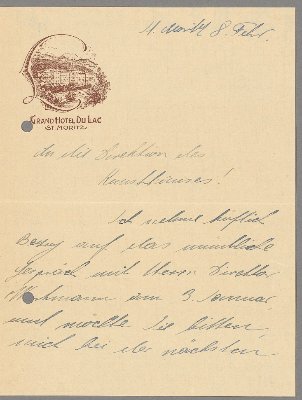 GRAND HOTEL DU LAC
ST. MORITZ
St. Moritz 8. Febr.
An die Direktion des
Kunsthauses!
Ich nehme höflich
Bezug auf das mündliche
Gespräch mit Herrn Direktor
am 3. Januar,
und möchte Sie bitten,
mich bei der nächsten